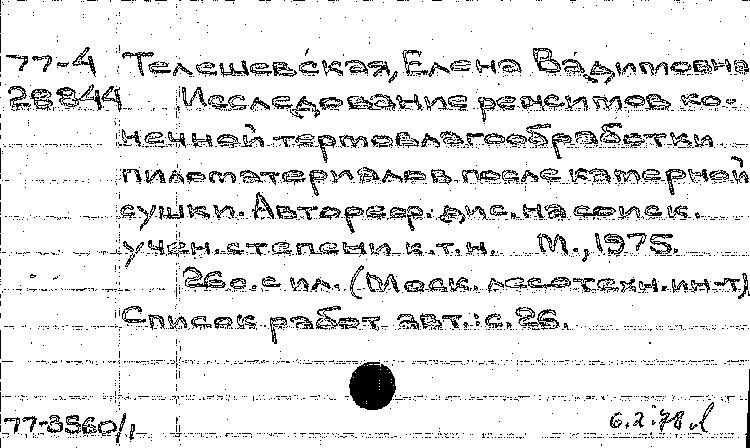 77-4 Телешевская, Елена Вадимовна
28844 Исследование режимов ко-
нечной термовлагообработки
пиломатериалов после камерной
сушки. Автореф. дис. на соиск.
учен. степени к.т.н. М., 1975.
26 с. с ил. (Моск. лесотехн. ин-т)
Список работ авт.: с. 26.
77-3560/1